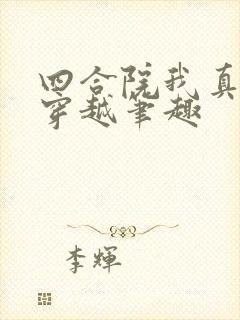 四合院我真
穿越笔趣
李輝